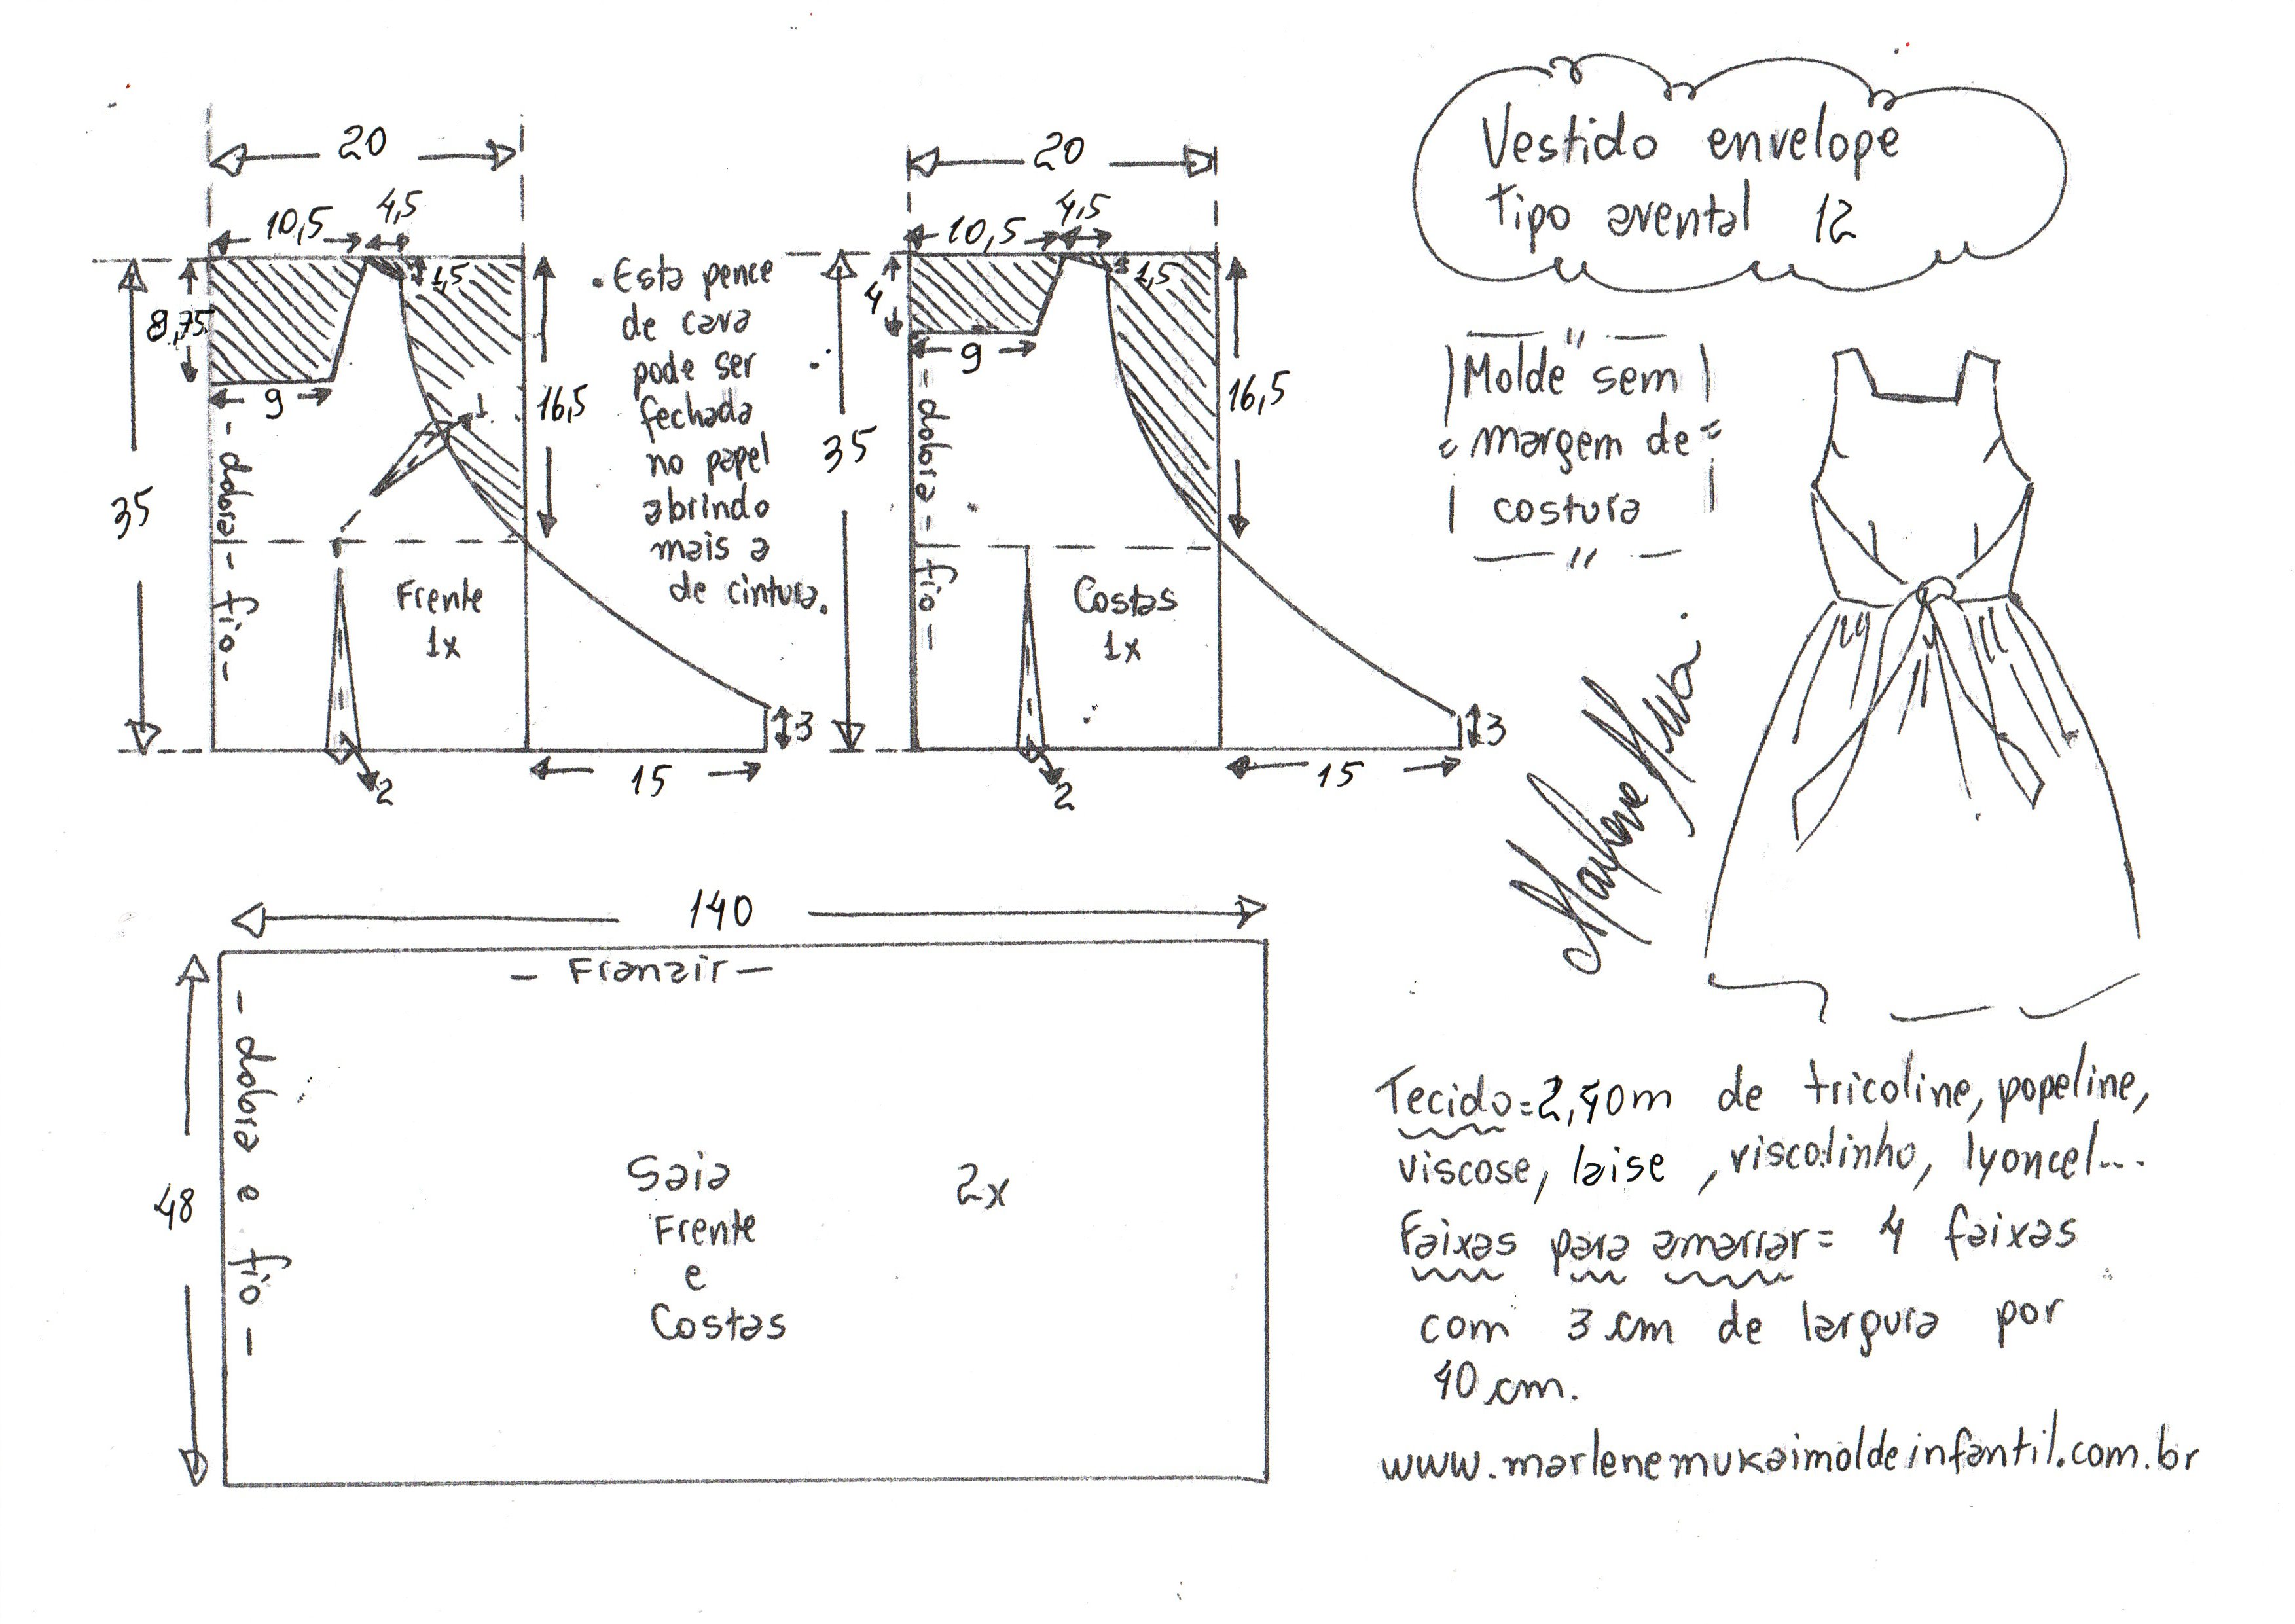 Vestido envelope
tipo avental 12
"Molde sem
margem de
costura"
20
10,5
4,5
1,5
8,75
9
35
16,5
- dobra - fio -
1
Frente
1x
3
15
2
. Esta pence
de cava
pode ser
fechada
no papel
abrindo
mais a
de cintura.
20
10,5
4,5
1,5
4
9
35
16,5
- dobra - fio -
Costas
1x
3
15
2
140
- Franzir -
48
- dobra e fio -
Saia
Frente
e
Costas
2x
Tecido=2,40m de tricoline, popeline,
viscose, laise, viscolinho, lyoncel...
Faixas para amarrar= 4 faixas
com 3 cm de largura por
40 cm.
www.marlenemukaimoldeinfantil.com.br